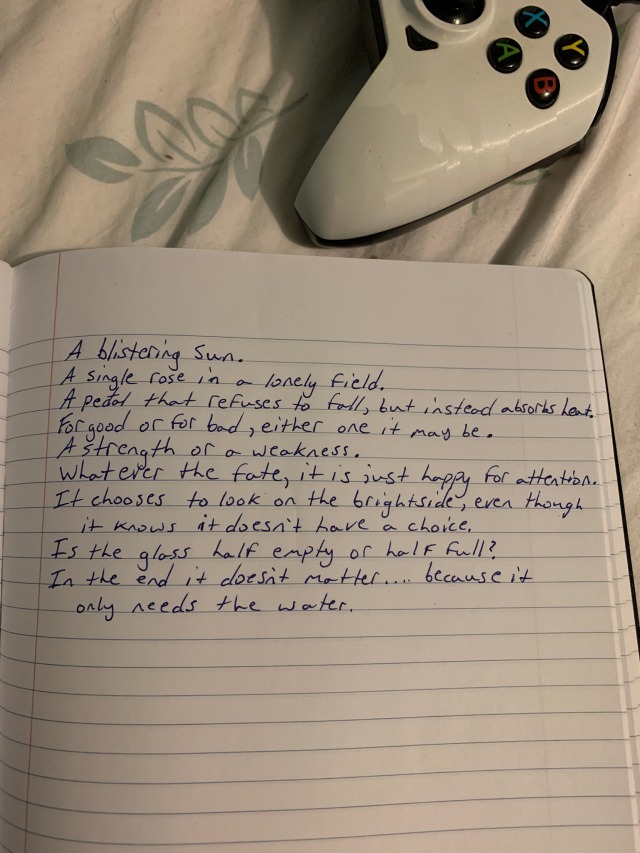 X
Y
A
B
A blistering Sun.
A single rose in a lonely field.
A pedal that refuses to fall, but instead absorbs heat.
For good or for bad, either one it may be.
A strength or a weakness.
Whatever the fate, it is just happy for attention.
It chooses to look on the brightside, even though
it knows it doesn't have a choice.
Is the glass half empty or half full?
In the end it doesn't matter.... because it
only needs the water.